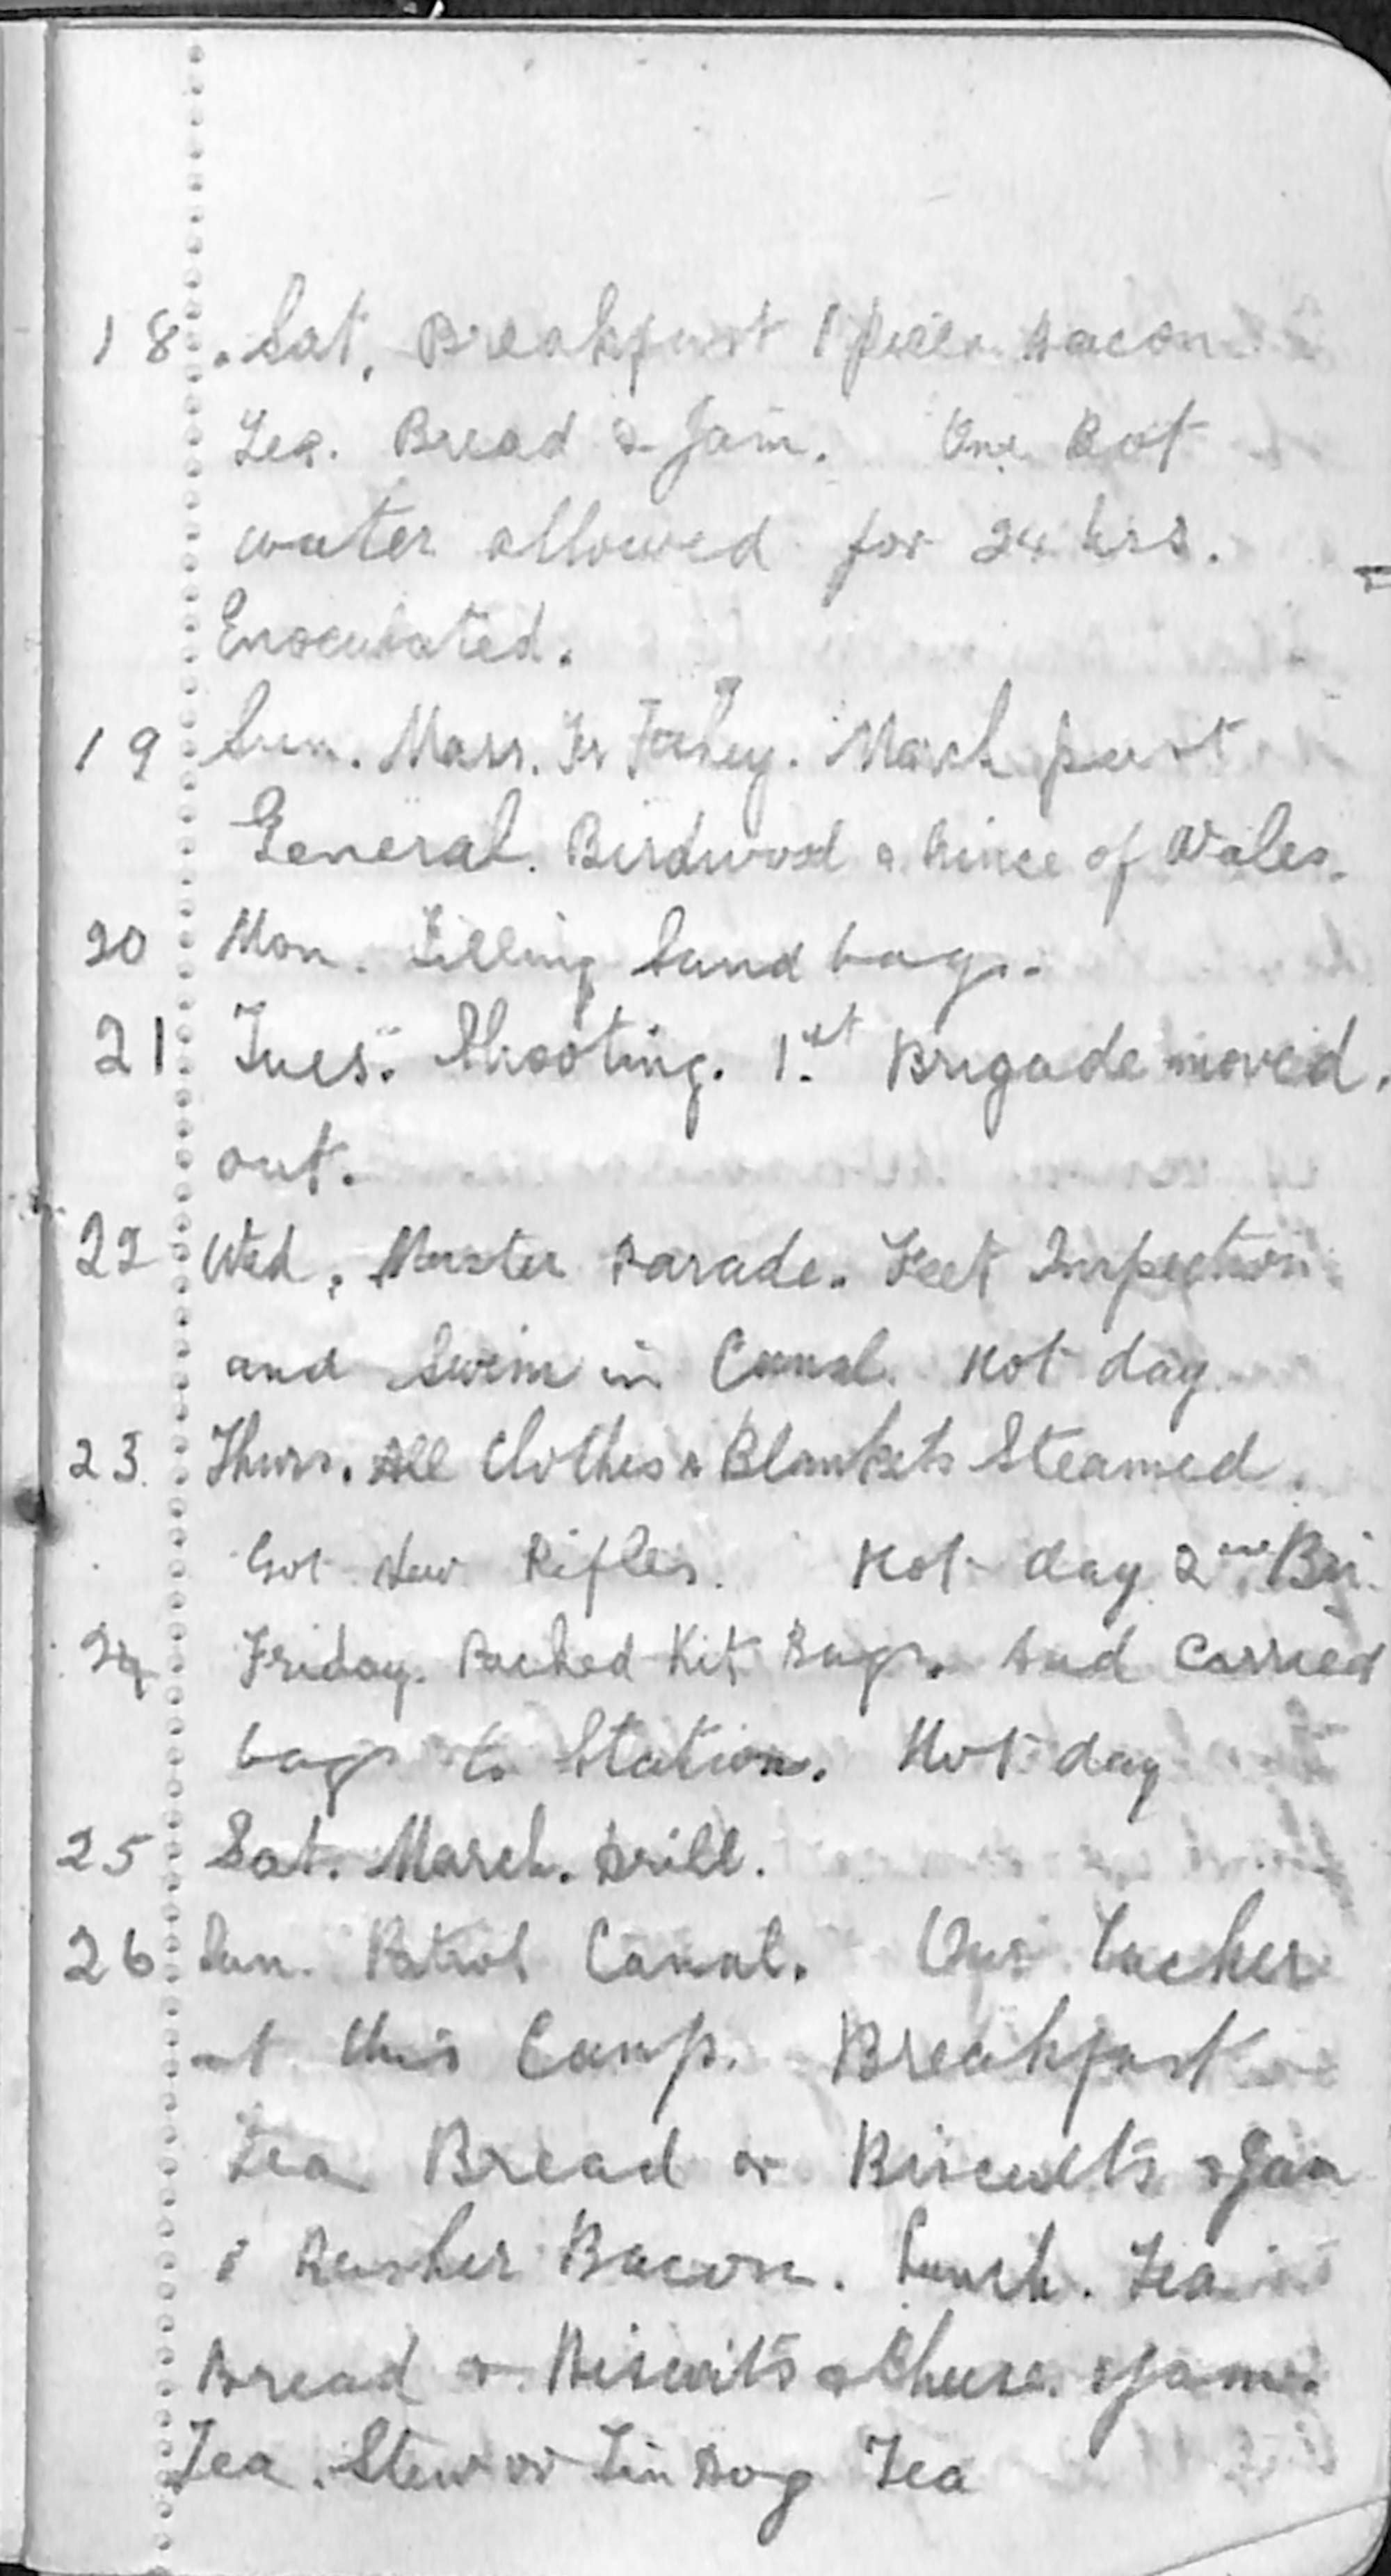 18. Sat. Breakfast 1 piece Bacon
Tea. Bread & Jam. One Bot
water allowed for 24 hrs.
Enoculated.
19 Sun. Mass. Fr Fahey. March past
General. Birdwood & Prince of Wales.
20 Mon. Filling Sand bags.
21 Tues. Shooting. 1st Brigade moved.
out.
22 Wed. Muster Parade. Feet Inspection
and Swim in Canal. Hot day
23. Thurs. All Clothes & Blankets Steamed.
Got New Rifles. Hot day 2nd Bri.
24 Friday. Packed Kit Bags. And Carried
bags to Station. Hot day
25 Sat. March. Drill.
26 Sun. Patrol Canal. Our Tucker
at this Camp. Breakfast
Tea Bread or Biscuits & Jam
1 Rasher Bacon. Lunch. Tea
Bread or Biscuits & Cheese. & Jam.
Tea. Stew or Tin Dog Tea